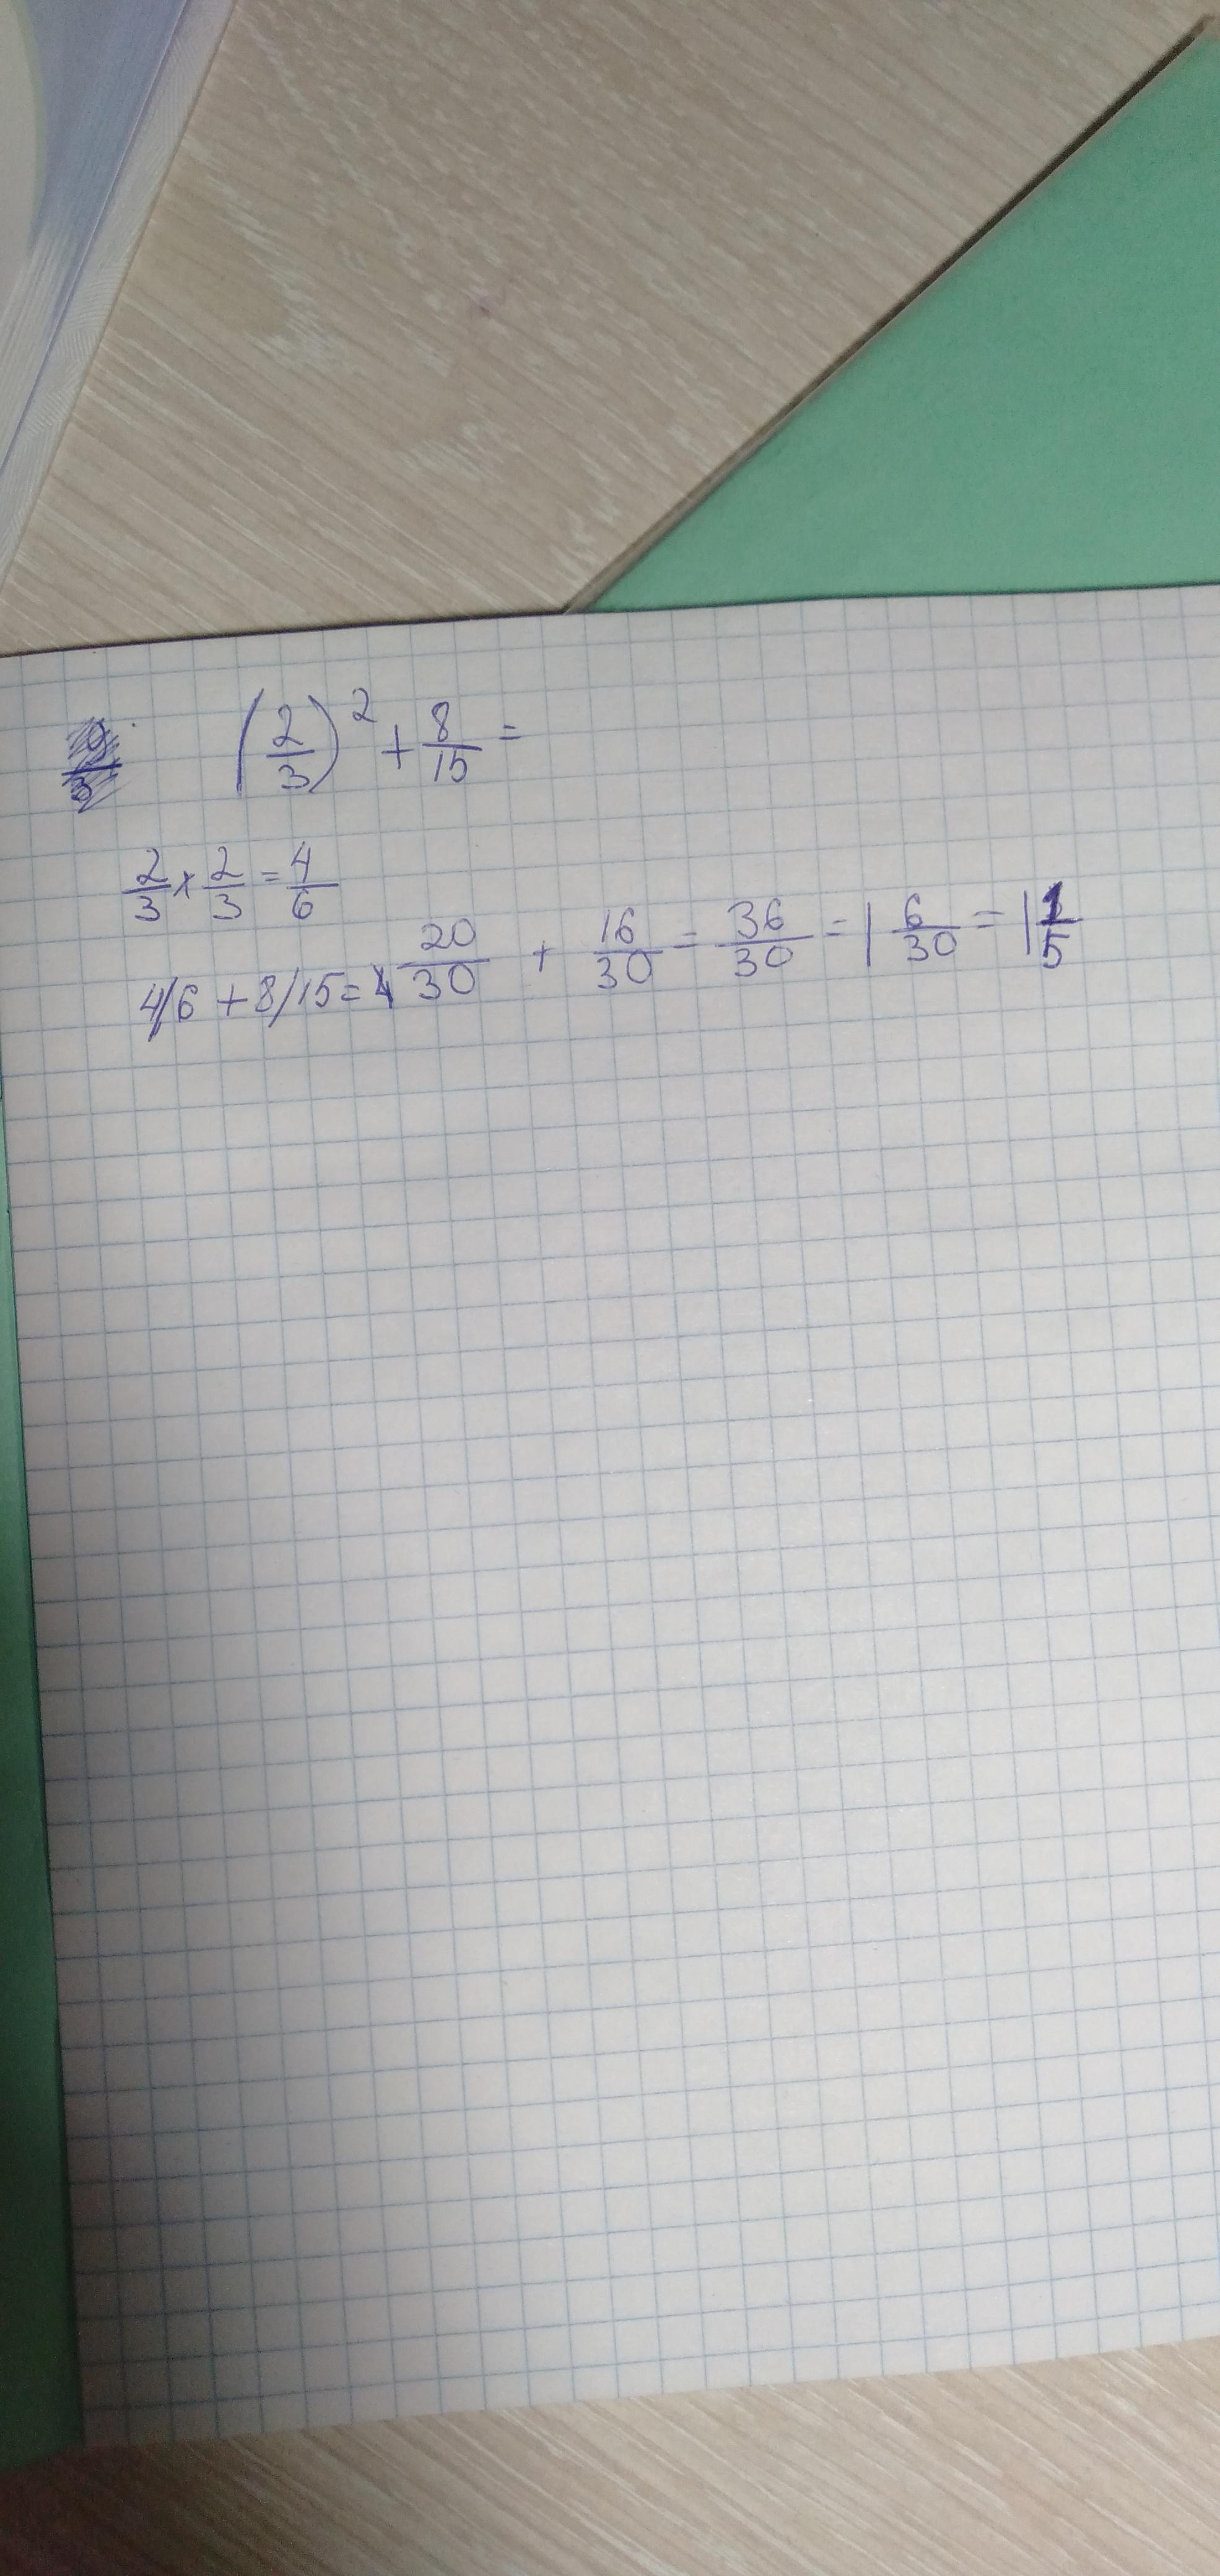 (2/3)² + 8/15 =
2/3 × 2/3 = 4/6
4/6 + 8/15 = 20/30 + 16/30 = 36/30 = 1 6/30 = 1 1/5